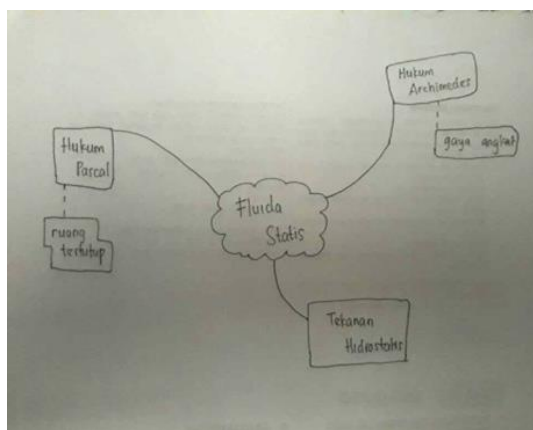 Hukum
Archimedes
gaya angkat
Hukum
Pascal
ruang
tertutup
Fluida
Statis
Tekanan
Hidrostatis